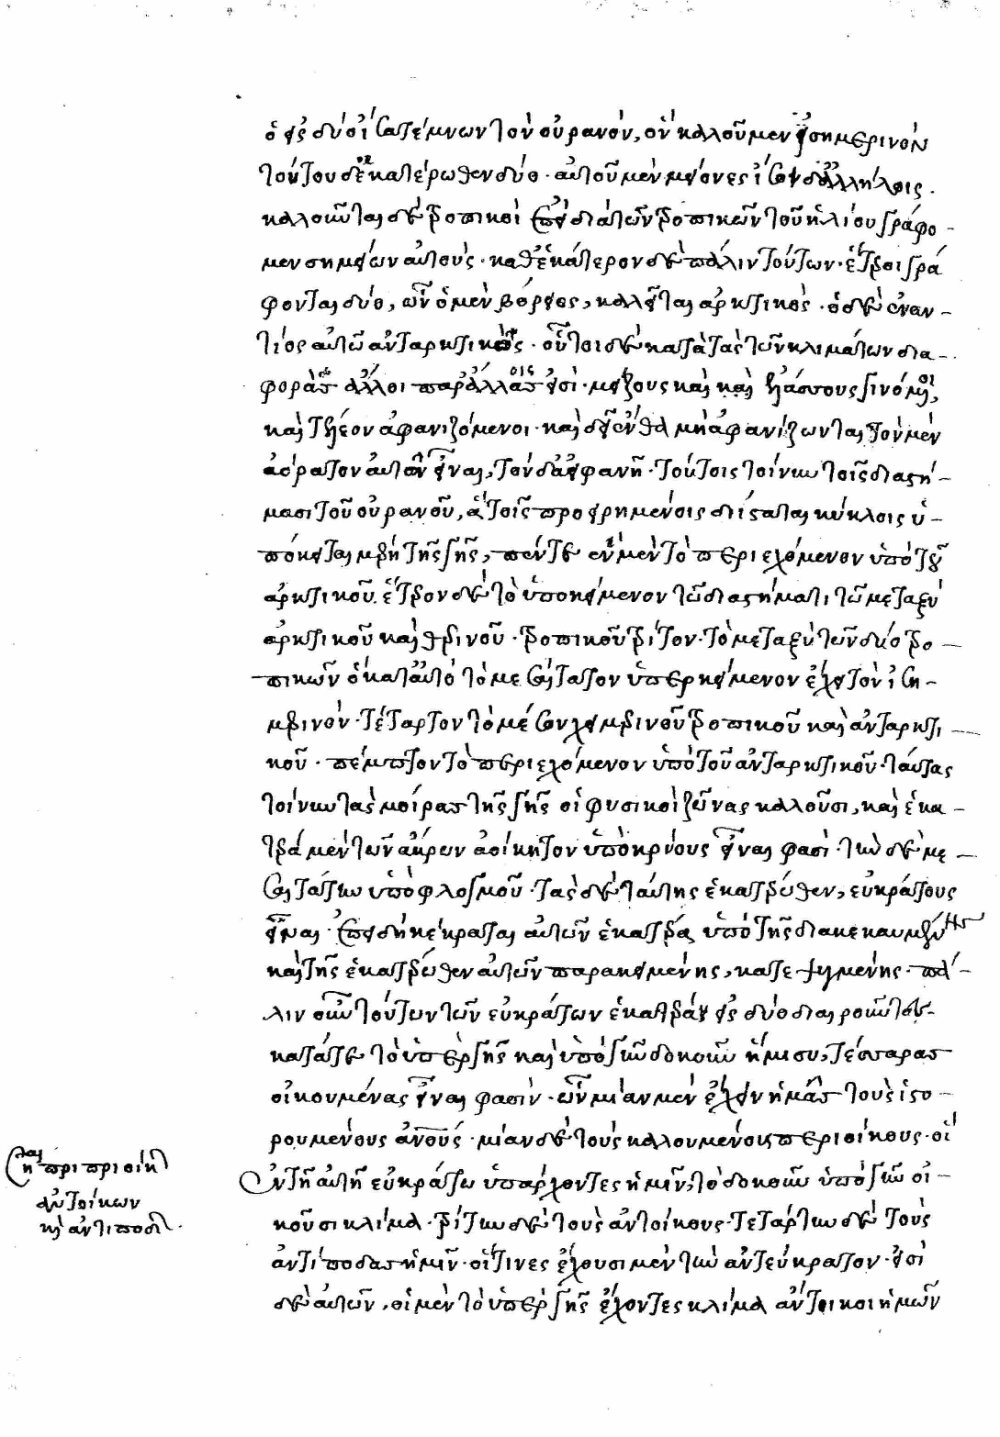 ὁ εἰς δύο ἴσα τέμνων τὸν οὐρανόν, ὃν καλοῦμεν ἰσημερινὸν
τούτου δὲ ἑκατέρωθεν δύο· αὐτοῦ μὲν μείονες ἴσοι δ' ἀλλήλοις.
καλοῦνται δὲ τροπικοὶ ἐπεὶ διὰ τῶν τροπικῶν τοῦ ἡλίου γράφο-
μεν σημείων αὐτούς· καθ' ἑκάτερον δὲ πάλιν τούτων· ἕτεροι γρά
φονται δύο, ὧν ὁ μὲν βόρειος, καλεῖται ἀρκτικός· ὁ δὲ ἐναν-
τίος αὐτῶ ἀνταρκτικός· οὗτοι δὲ κατὰ τὰς τῶν κλιμάτων δια-
φορὰς ἄλλοι παρ' ἄλλοις εἰσί· μείζους καὶ καὶ ἐλάττους γινόμενοι,
καὶ τέλεον ἀφανιζόμενοι· καὶ οὗ ἔνθα μὴ ἀφανίζωνται τὸν μὲν
ἀόρατον αὐτῶν εἶναι, τὸν δ' ἀειφανῆ· τούτοις τοίνυν τοῖς διαστή-
μασι τοῦ οὐρανοῦ, ἃ τοῖς προειρημένοις διίσταται κύκλοις ὑ-
πόκειται μέρη τῆς γῆς, πέντε ἓν μὲν τὸ περιεχόμενον ὑπὸ τοῦ
ἀρκτικοῦ. ἕτερον δὲ τὸ ὑποκείμενον τῶ διαστήματι τῶ μεταξὺ
ἀρκτικοῦ καὶ θερινοῦ· τροπικοῦ τρίτον· τὸ μεταξὺ τῶν δύο τρο-
πικῶν ὃ κατ' αὐτὸ τὸ μεσαίτατον ὑπερκείμενον ἔχει τὸν ἰση-
μερινόν· τέταρτον τὸ μέσον χειμερινοῦ τροπικοῦ καὶ ἀνταρκτι-
κοῦ· πέμπτον τὸ περιεχόμενον ὑπὸ τοῦ ἀνταρκτικοῦ· ταύτας
τοίνυν τὰς μοίρας τῆς γῆς οἱ φυσικοὶ ζώνας καλοῦσι, καὶ ἑκα-
τέραν μὲν τῶν ἄκρων ἀοίκητον ὑπὸ κρύους εἶναι φασὶ· τὴν δὲ με-
σαιτάτην ὑπὸ φλογμοῦ· τὰς δὲ ταύτης ἑκατέρωθεν, εὐκράτους
εἶναι· ἐπειδὴ κέκραται αὐτῶν ἑκατέρα ὑπὸ τῆς διακεκαυμένης
καὶ τῆς ἑκατέρωθεν αὐτῶν παρακειμένης, κατεψυγμένης· πά-
λιν οὖν τούτων τῶν εὐκράτων ἑκατέραν εἰς δύο διαιροῦντες
κατά τε τὸ ὑπὲρ γῆς καὶ ὑπὸ γῆν δοκοῦν ἥμισυ, τέσσαρας
οἰκουμένας εἶναι φασίν· ὧν μίαν μὲν ἔχειν ἡμᾶς τοὺς ἱστο-
ρουμένους ἀνους· μίαν δὲ τοὺς καλουμένους περιοίκους· οἳ
ἐν τῆ αὐτῆ εὐκράτω ὑπάρχοντες ἡμῖν, τὸ δοκοῦν ὑπὸ γῆν οἰ-
κοῦσι κλίμα· τρίτην δὲ τοὺς ἀντοίκους· τετάρτην δὲ τοὺς
ἀντίποδας ἡμῖν· οἵτινες ἔχουσι μὲν τὴν ἀντεύκρατον· εἰσὶ
δὲ αὐτῶν, οἱ μὲν τὸ ὑπὲρ γῆς ἔχοντες κλίμα ἄντοικοι ἡμῶν
ἀντοίκων
καὶ ἀντιπόδων